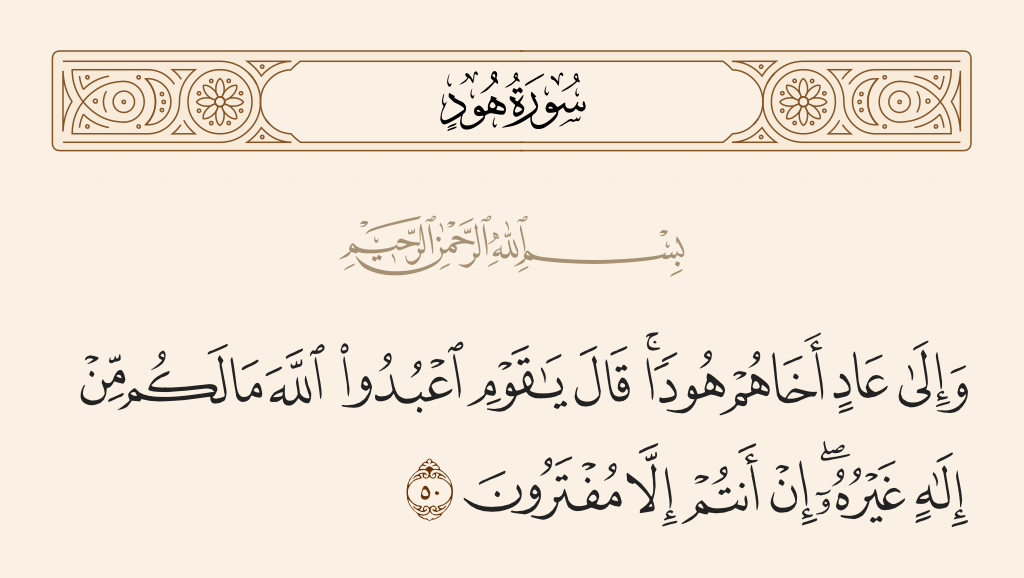 سُورَةُ هُودٍ
بِسْمِ ٱللَّهِ ٱلرَّحْمَٰنِ ٱلرَّحِيمِ
وَإِلَىٰ عَادٍ أَخَاهُمْ هُودًا ۚ قَالَ يَـٰقَوْمِ ٱعْبُدُوا۟ ٱللَّهَ مَا لَكُم مِّنْ
إِلَـٰهٍ غَيْرُهُۥٓ ۖ إِنْ أَنتُمْ إِلَّا مُفْتَرُونَ ٥٠